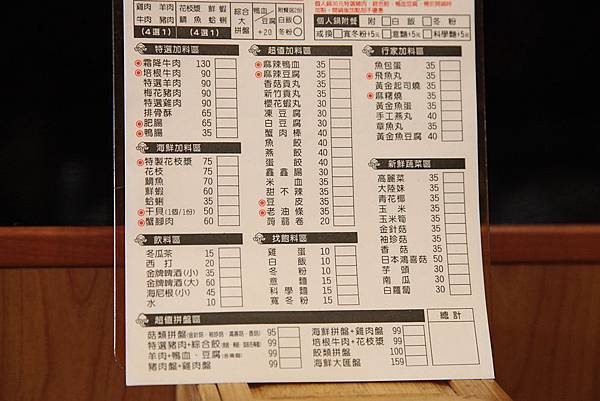 雞肉 羊肉 花枝漿 鮮蝦
牛肉 豬肉 鯛魚 蛤蜊
(4選1) (4選1)
綜合大拼盤
鴨血/豆腐+20
附餐(2選2份)
白飯
冬粉
個人鍋附餐 附 白飯 冬粉
或換 寬冬粉+5元 意麵+5元 科學麵+5元
特選加料區
霜降牛肉 130
培根牛肉 100
特選羊肉 65
梅花豬肉 65
特選雞肉 65
排骨酥 65
肥腸 65
鴨腸 35
海鮮加料區
特製花枝漿 75
花枝 75
鯛魚 70
鮮蝦 60
蛤蜊 35
干貝(1個/1份) 50
蟹腳肉 60
飲料區
冬瓜茶 15
西打 20
金牌啤酒(小) 35
金牌啤酒(大) 60
海尼根(小) 45
水 10
超值加料區
麻辣鴨血 35
麻辣豆腐 35
香菇貢丸 35
新竹貢丸 35
櫻花蝦丸 30
凍豆腐 30
白豆腐 30
蟹肉棒 40
魚餃 40
燕餃 40
蛋餃 40
鑫鑫腸 30
米血 30
甜不辣 35
豆皮 35
老油條 35
蒟蒻卷 20
找飽料區
雞蛋 10
白飯 10
冬粉 10
意麵 15
科學麵 15
寬冬粉 15
行家加料區
魚包蛋 35
飛魚丸 35
黃金起司燒 35
麻糬燒 35
黃金魚蛋 35
手工燕丸 35
章魚丸 35
黃金魚豆腐 35
新鮮蔬菜區
高麗菜 35
大陸妹 35
青花椰 35
玉米 35
玉米筍 35
金針菇 35
袖珍菇 35
香菇 35
日本鴻喜菇 50
芋頭 30
南瓜 30
白蘿蔔 30
超值拼盤區
菇類拼盤 95
特選豬肉+綜合餃 99
羊肉+鴨血、豆腐 99
豬肉盤+雞肉盤 99
海鮮拼盤+雞肉盤 99
培根牛肉+花枝漿 99
餃類拼盤 100
海鮮大匯盤 159
總計